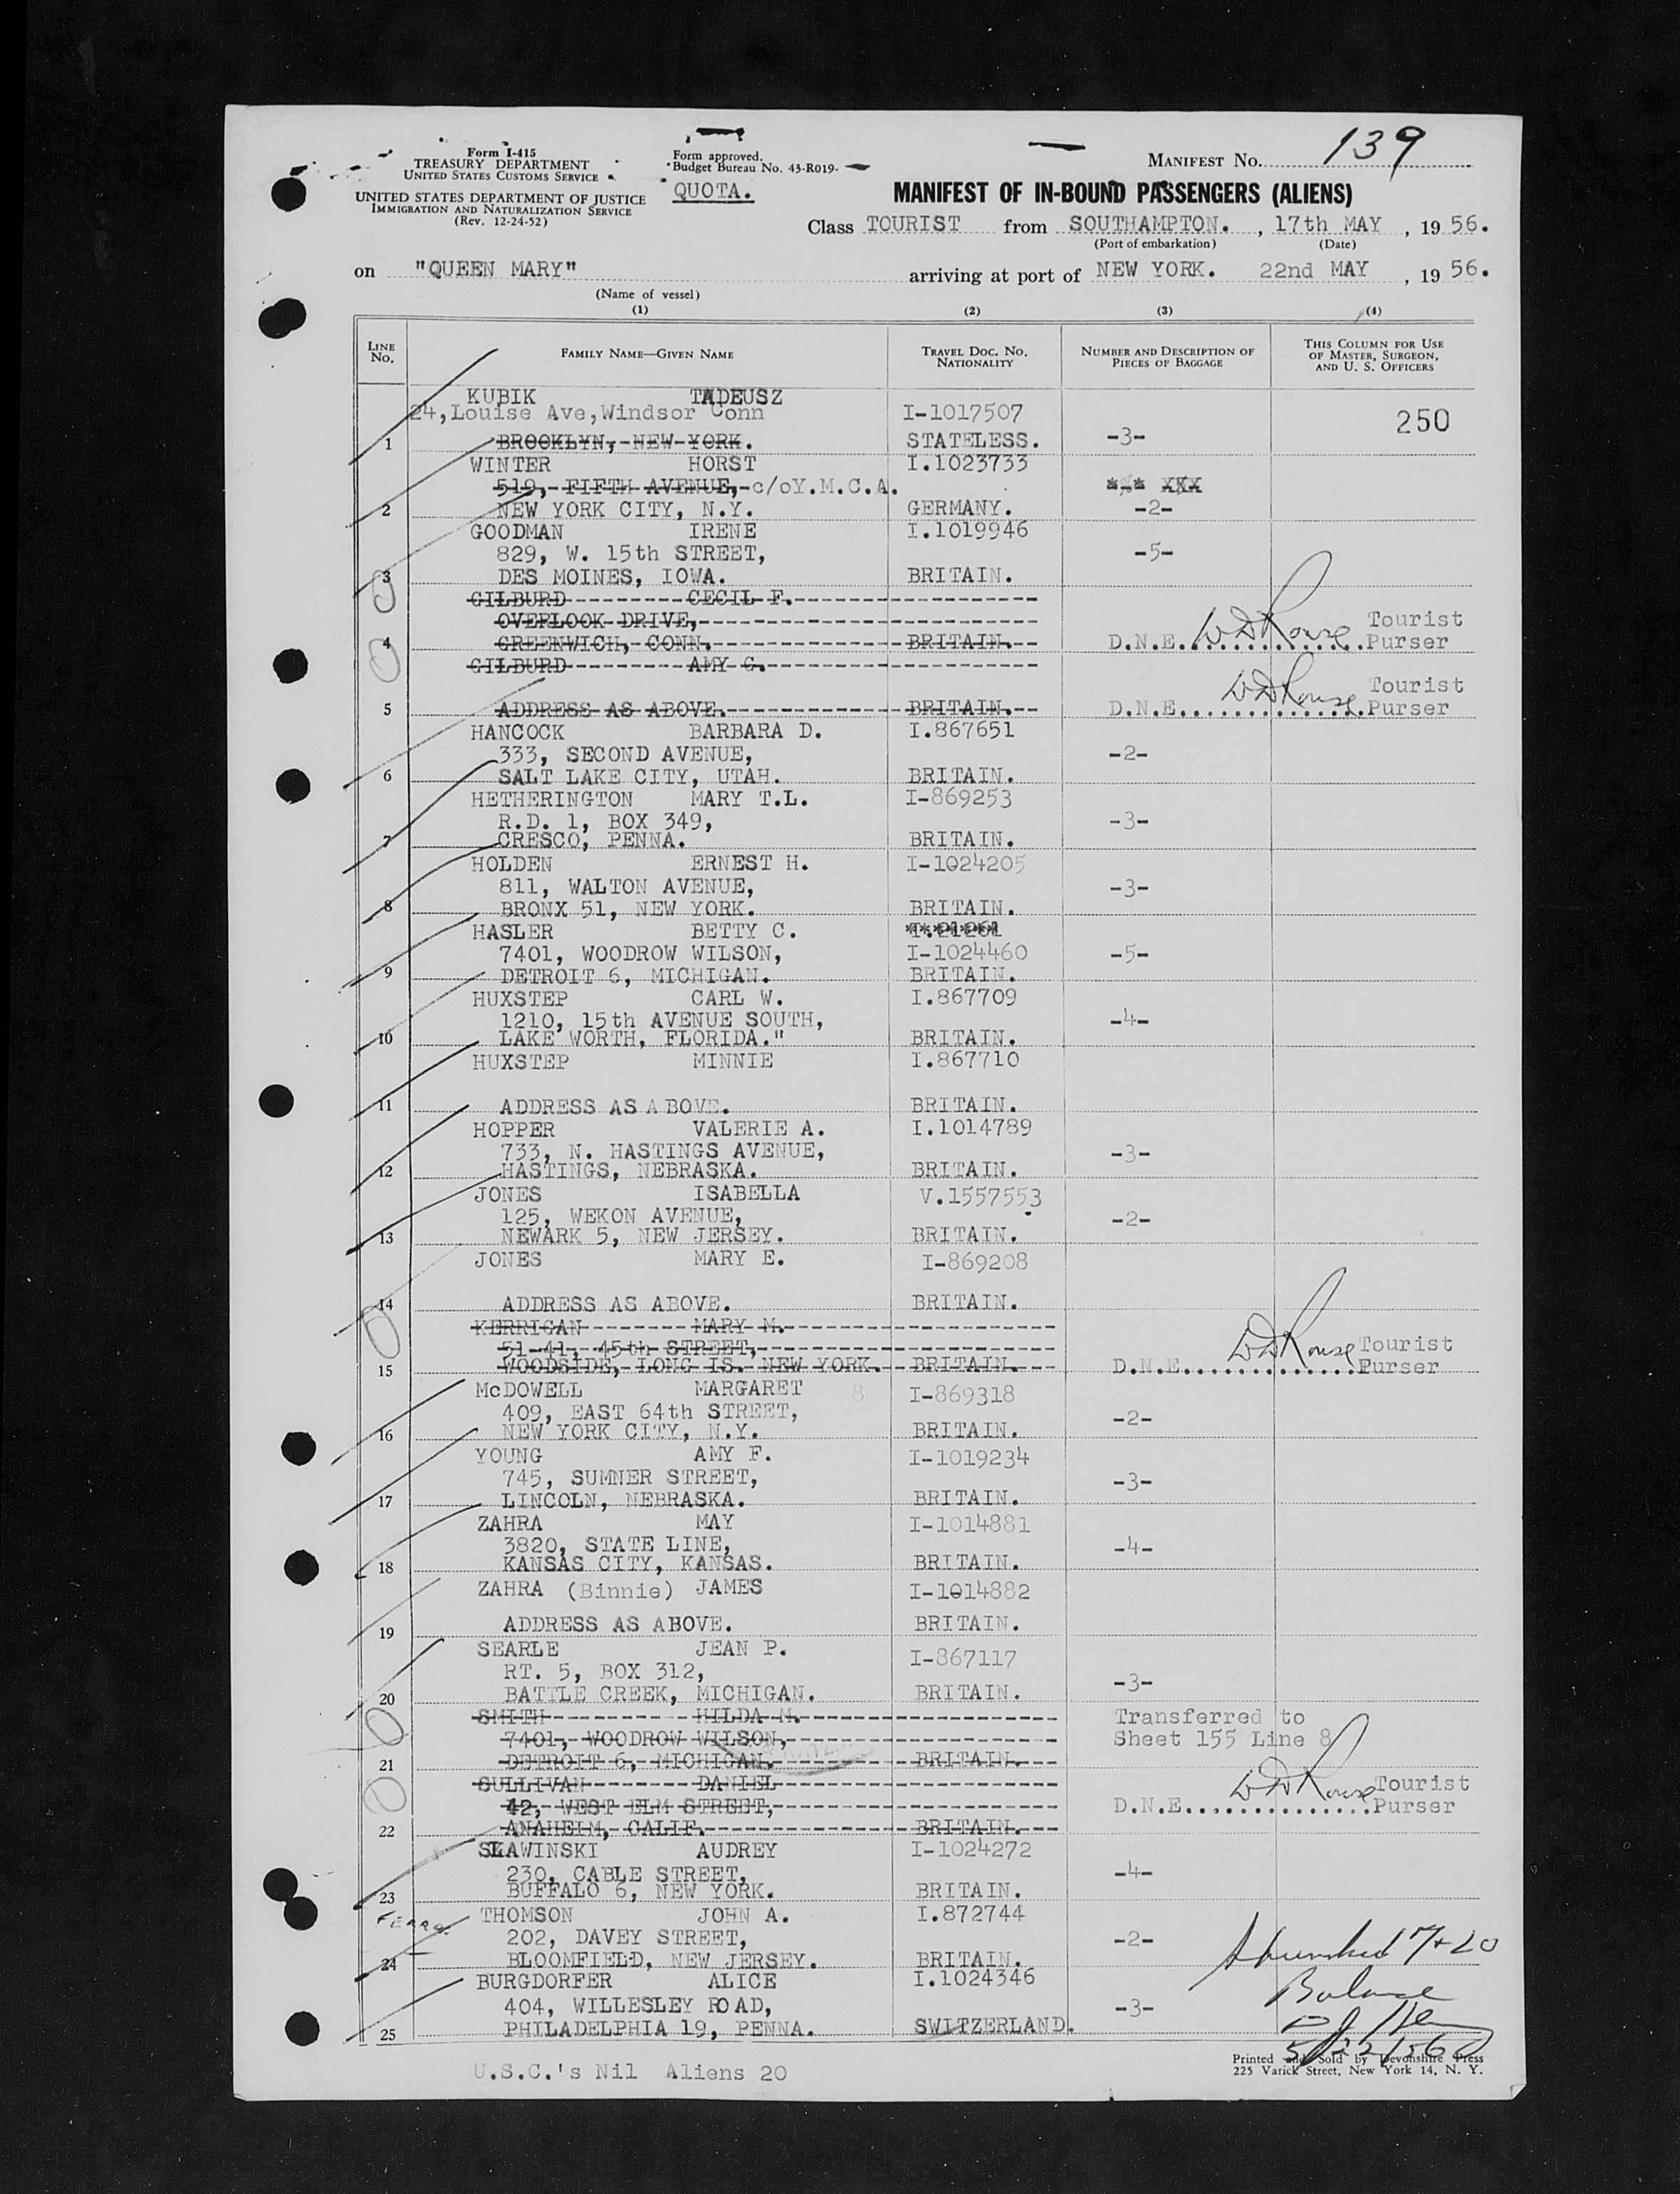 Form I-415
TREASURY DEPARTMENT
UNITED STATES CUSTOMS SERVICE
UNITED STATES DEPARTMENT OF JUSTICE
IMMIGRATION AND NATURALIZATION SERVICE
(Rev. 12-24-52)
Form approved.
Budget Bureau No. 43-R019-
QUOTA.
MANIFEST No. 139
MANIFEST OF IN-BOUND PASSENGERS (ALIENS)
Class TOURIST from SOUTHAMPTON. , 17th MAY , 19 56.
(Port of embarkation) (Date)
on "QUEEN MARY" arriving at port of NEW YORK. 22nd MAY , 19 56.
(Name of vessel)
(1) (2) (3) (4)
LINE No. FAMILY NAME—GIVEN NAME TRAVEL DOC. No. NATIONALITY NUMBER AND DESCRIPTION OF PIECES OF BAGGAGE THIS COLUMN FOR USE OF MASTER, SURGEON, AND U. S. OFFICERS
KUBIK TADEUSZ
24,Louise Ave,Windsor Conn I-1017507 250
1 BROOKLYN, NEW YORK. STATELESS. -3-
WINTER HORST I.1023733
519, FIFTH AVENUE, c/oY.M.C.A. XXX
2 NEW YORK CITY, N.Y. GERMANY. -2-
GOODMAN IRENE I.1019946
829, W. 15th STREET, -5-
3 DES MOINES, IOWA. BRITAIN.
GILBURD CECIL F.
OVERLOOK DRIVE, Tourist
4 GREENWICH, CONN. BRITAIN. D.N.E. W D Rouse Purser
GILBURD AMY G.
Tourist
5 ADDRESS AS ABOVE. BRITAIN. D.N.E. W D Rouse Purser
HANCOCK BARBARA D. I.867651
333, SECOND AVENUE, -2-
6 SALT LAKE CITY, UTAH. BRITAIN.
HETHERINGTON MARY T.L. I-869253
R.D. 1, BOX 349, -3-
7 CRESCO, PENNA. BRITAIN.
HOLDEN ERNEST H. I-1024205
811, WALTON AVENUE, -3-
8 BRONX 51, NEW YORK. BRITAIN.
HASLER BETTY C.
7401, WOODROW WILSON, I-1024460 -5-
9 DETROIT 6, MICHIGAN. BRITAIN.
HUXSTEP CARL W. I.867709
1210, 15th AVENUE SOUTH, -4-
10 LAKE WORTH, FLORIDA." BRITAIN.
HUXSTEP MINNIE I.867710
11 ADDRESS AS ABOVE. BRITAIN.
HOPPER VALERIE A. I.1014789
733, N. HASTINGS AVENUE, -3-
12 HASTINGS, NEBRASKA. BRITAIN.
JONES ISABELLA V.1557553
125, WEKON AVENUE, -2-
13 NEWARK 5, NEW JERSEY. BRITAIN.
JONES MARY E. I-869208
14 ADDRESS AS ABOVE. BRITAIN.
KERRIGAN MARY M.
51-41, 45th STREET, Tourist
15 WOODSIDE, LONG IS. NEW YORK. BRITAIN. D.N.E. W D Rouse Purser
McDOWELL MARGARET 8 I-869318
409, EAST 64th STREET, -2-
16 NEW YORK CITY, N.Y. BRITAIN.
YOUNG AMY F. I-1019234
745, SUMNER STREET, -3-
17 LINCOLN, NEBRASKA. BRITAIN.
ZAHRA MAY I-1014881
3820, STATE LINE, -4-
18 KANSAS CITY, KANSAS. BRITAIN.
ZAHRA (Binnie) JAMES I-1014882
19 ADDRESS AS ABOVE. BRITAIN.
SEARLE JEAN P. I-867117
RT. 5, BOX 312, -3-
20 BATTLE CREEK, MICHIGAN. BRITAIN.
SMITH HILDA M. Transferred to
7401, WOODROW WILSON, Sheet 155 Line 8
21 DETROIT 6, MICHIGAN. BRITAIN.
SULLIVAN DANIEL Tourist
42, WEST ELM STREET, D.N.E. W D Rouse Purser
22 ANAHEIM, CALIF. BRITAIN.
SLAWINSKI AUDREY I-1024272
230, CABLE STREET, -4-
23 BUFFALO 6, NEW YORK. BRITAIN.
THOMSON JOHN A. I.872744
202, DAVEY STREET, -2-
24 BLOOMFIELD, NEW JERSEY. BRITAIN.
BURGDORFER ALICE I.1024346
404, WILLESLEY ROAD, -3-
25 PHILADELPHIA 19, PENNA. SWITZERLAND.
Balance
5/22/56
U.S.C.'s Nil Aliens 20
Printed and Sold by Devonshire Press
225 Varick Street, New York 14, N. Y.